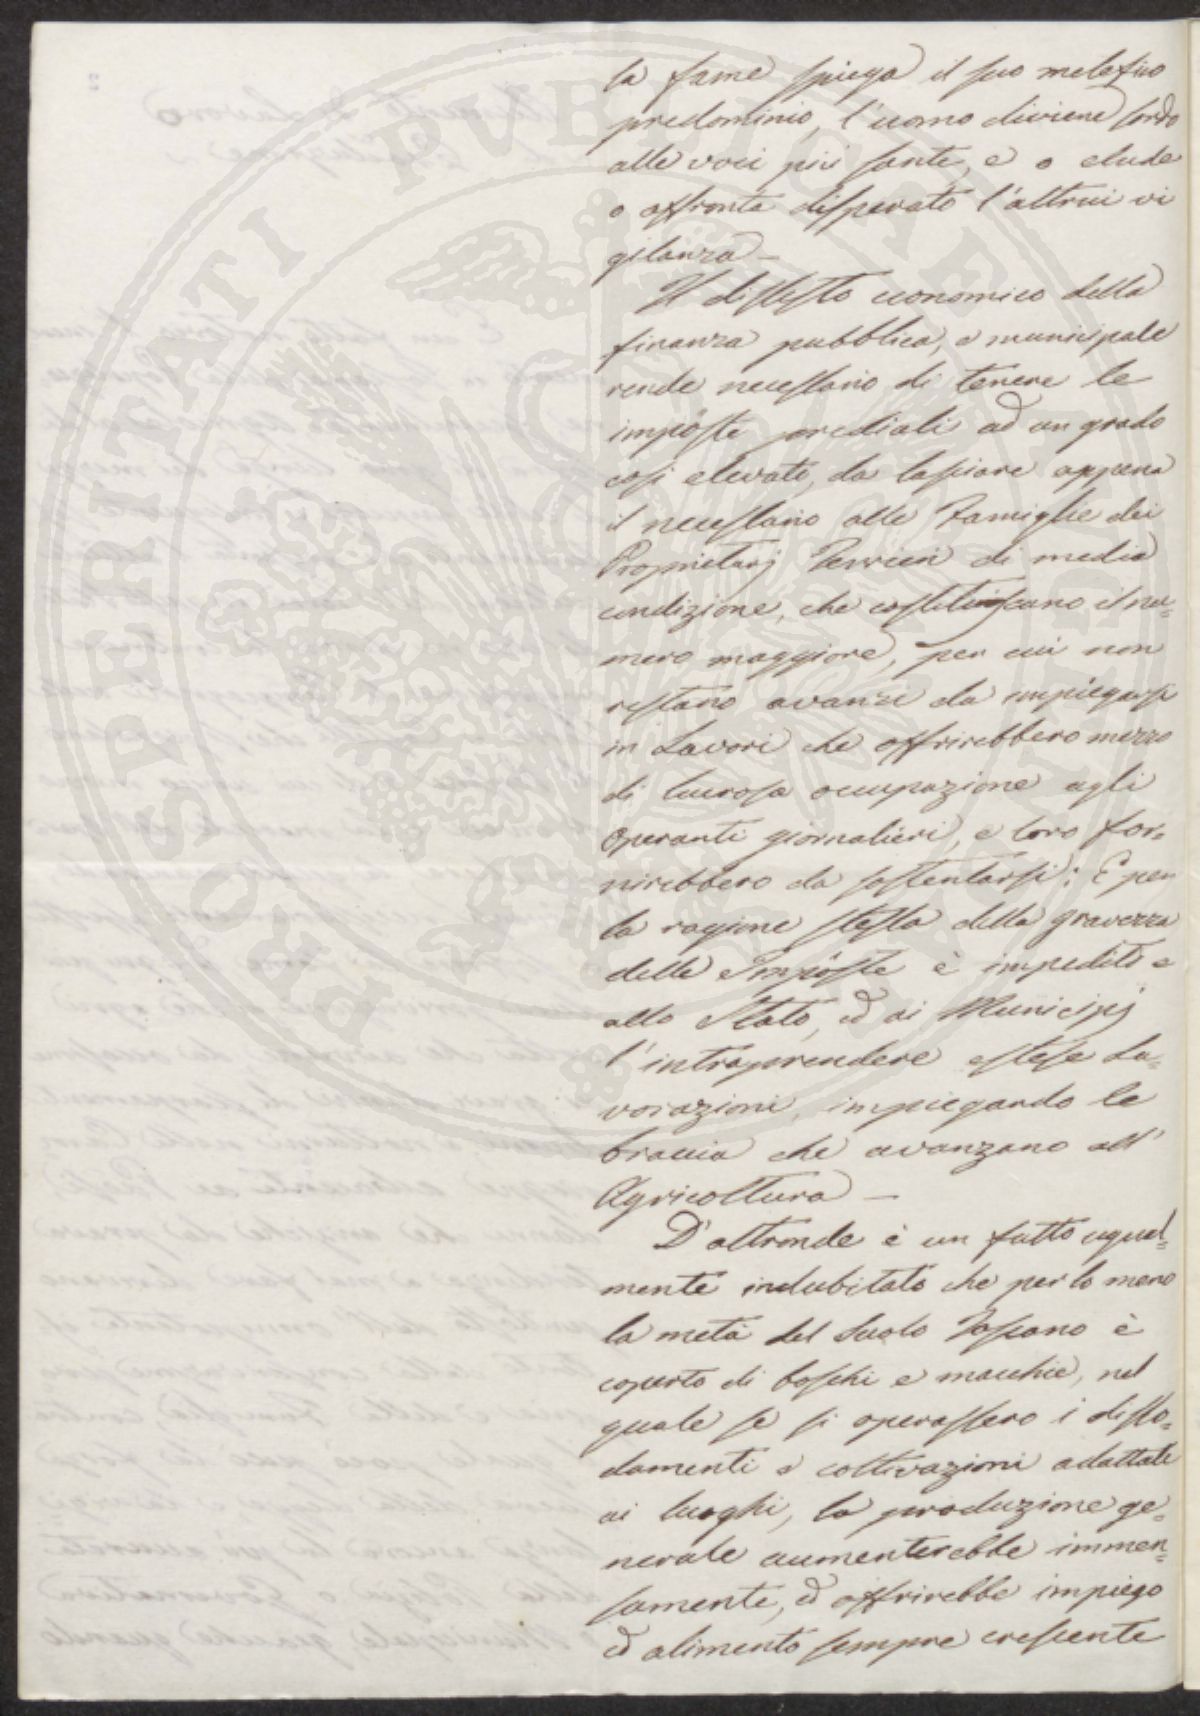 la fame spiega il suo malefico
predominio, l'uomo diviene sordo
alle voci più sante, e o elude
o affronta disperato l'altrui vi
gilanza —
Il dissesto economico della
finanza pubblica, e municipale
rende necessario di tenere le
imposte prediali ad un grado
così elevato, da lasciare appena
il necessario alle Famiglie dei
Proprietarj Terrieri di media
condizione, che costituiscano il nu=
mero maggiore, per cui non
restano avanzi da impiegarsi
in Lavori che offrirebbero mezzo
di lucrosa occupazione agli
operanti giornalieri, e loro for=
nirebbero da sostentarsi; E per
la ragione stessa della gravezza
delle Imposte è impedito e
allo Stato, ed ai Municipj
l'intraprendere estese La=
vorazioni, impiegando le
braccia che avanzano all'
Agricoltura —
D'altronde è un fatto egual=
mente indubitato che per lo meno
la metà del Suolo Toscano è
coperto di boschi e macchie, nel
quale se si operassero i disso=
damenti e coltivazioni adattate
ai luoghi, la produzione ge=
nerale aumenterebbe immen=
samente, ed offrirebbe impiego
ed alimento sempre crescente
PROSPERITATI PVBLICAE